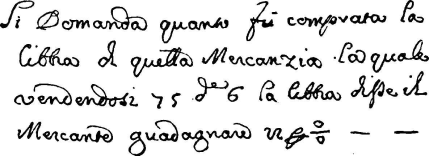 Si Domanda quanto fù comprata la
libbra di quella Mercanzia la quale
vendendosi 75 de 6 la libbra disse il
Mercante guadagnare